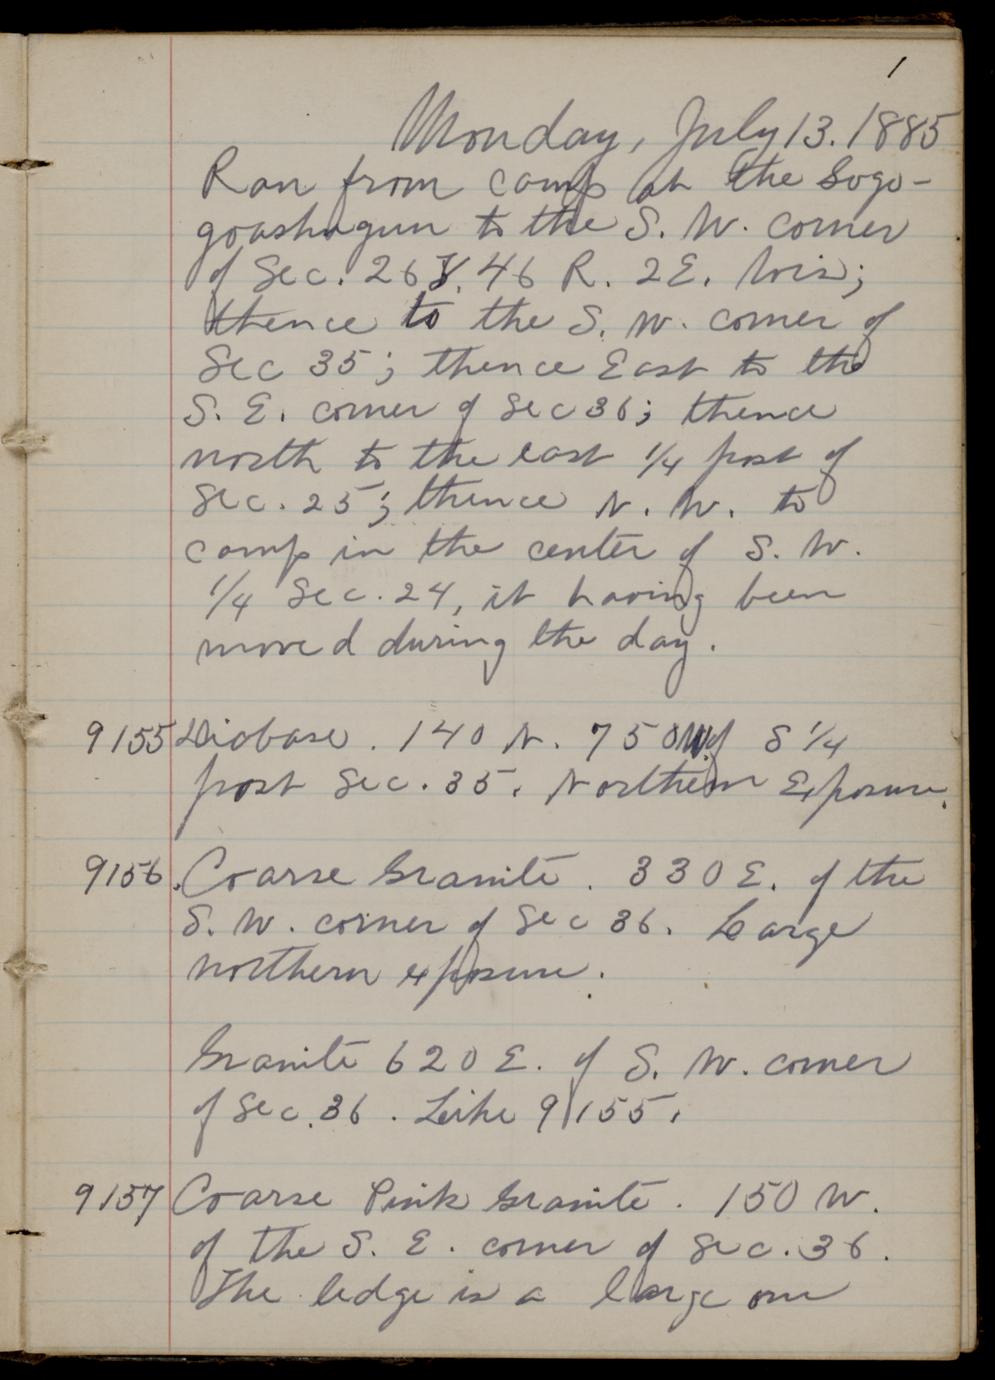 1
Monday, July 13. 1885
Ran from camp at the Gogo-
goashugun to the S. W. corner
of Sec. 26 T. 46 R. 2E. Wis;
thence to the S. W. corner of
Sec 35; thence East to the
S. E. corner of Sec 36; thence
north to the east 1/4 post of
Sec. 25; thence N. W. to
camp in the center of S. W.
1/4 Sec. 24, it having been
moved during the day.
9155 Diabase. 140 N. 750 W of S 1/4
post Sec. 35. Northern Exposure.
9156. Coarse Granite. 330 E. of the
S. W. corner of Sec 36. Large
northern exposure.
Granite 620 E. of S. W. corner
of Sec. 36. Like 9155.
9157 Coarse Pink Granite. 150 W.
of the S. E. corner of Sec. 36.
The ledge is a large one